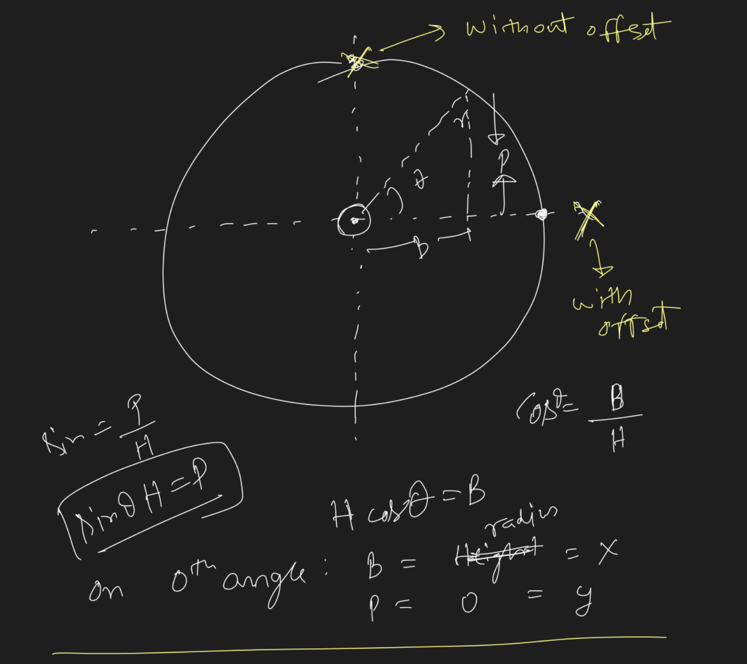 Without offset
r
θ
P
B
with
offset
Sin = P/H
Cosθ = B/H
Sinθ H = P
H cosθ = B
radius
on 0th angle : B = Height = x
P = 0 = y